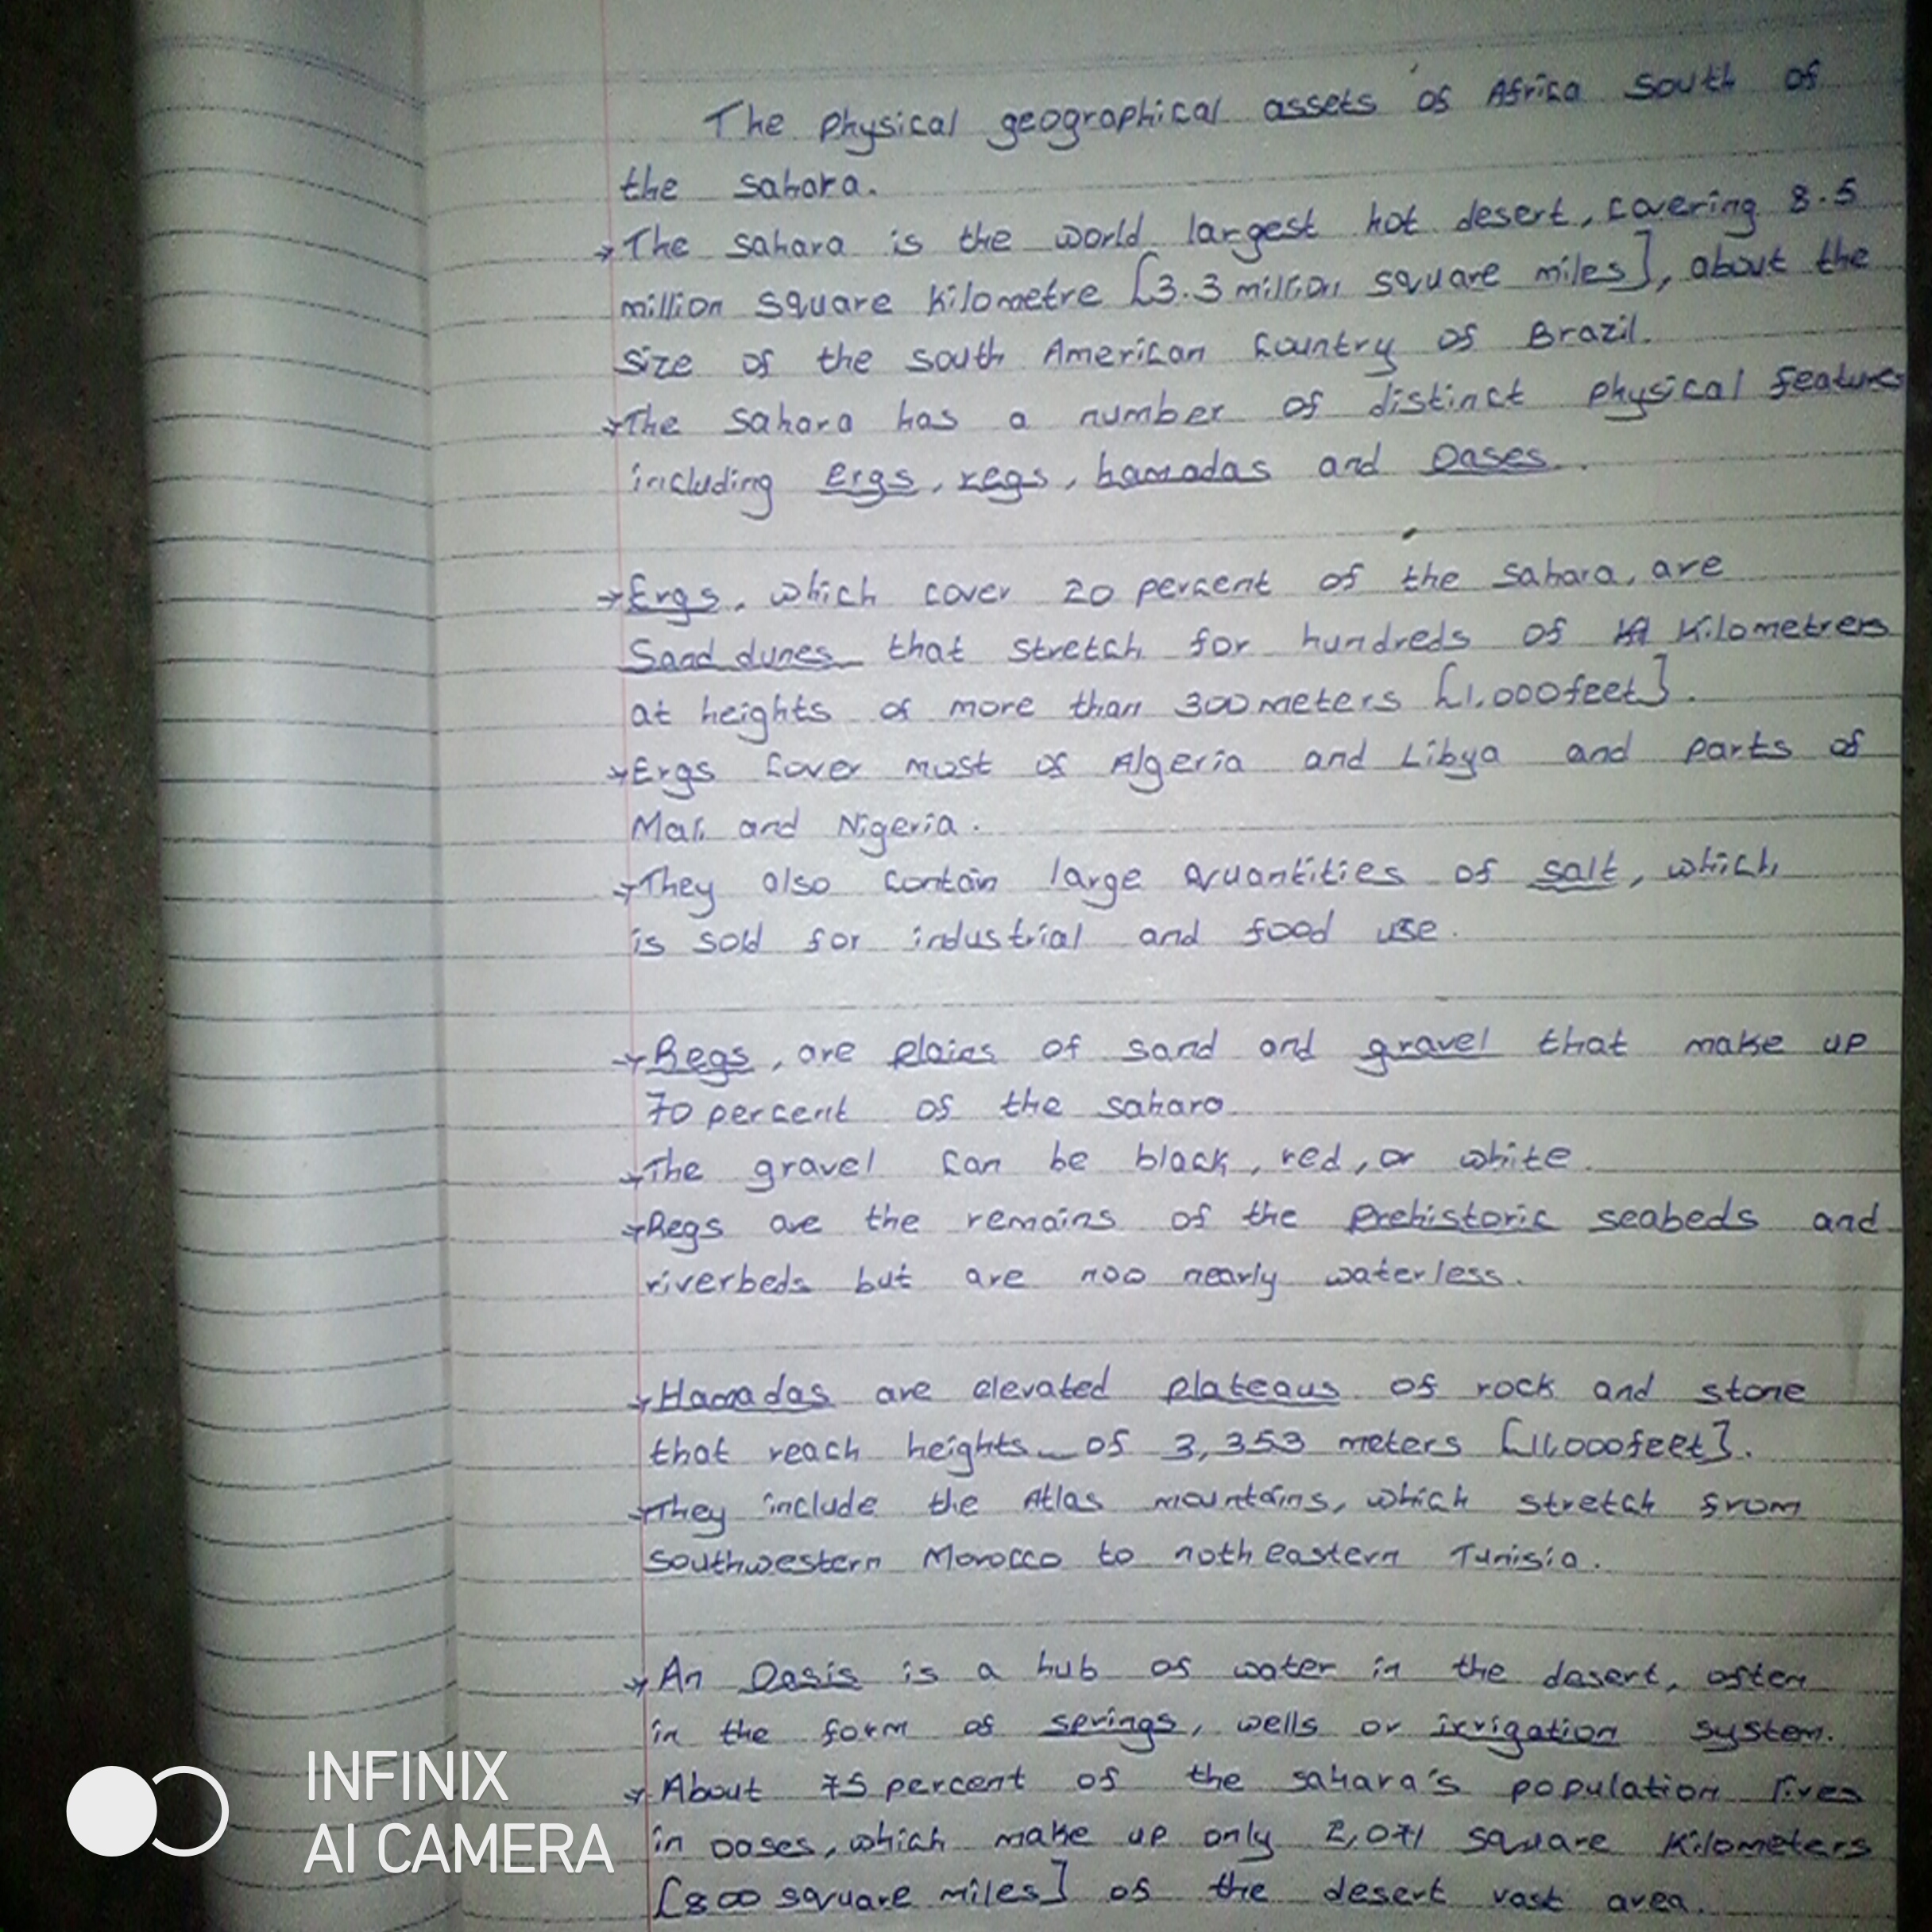 The physical geographical assets of Africa South of
the sahara.
→ The sahara is the world largest hot desert, covering 8.5
million square kilometre [3.3 million square miles], about the
size of the south American country of Brazil.
→ The sahara has a number of distinct physical features
including Ergs, regs, hamadas and Oases.
→ Ergs, which cover 20 percent of the sahara, are
Sand dunes that stretch for hundreds of Kilometrers
at heights of more than 300 meters [1,000 feet].
→ Ergs cover most of Algeria and Libya and parts of
Mali and Nigeria.
→ They also contain large quantities of salt, which
is sold for industrial and food use.
→ Regs, are plains of sand and gravel that make up
70 percent of the sahara
→ The gravel can be black, red, or white.
→ Regs are the remains of the prehistoric seabeds and
riverbeds but are noo nearly waterless.
→ Hamadas are elevated plateaus of rock and stone
that reach heights of 3,353 meters [11,000 feet].
→ They include the Atlas mountains, which stretch from
southwestern Morocco to notheastern Tunisia.
→ An Oasis is a hub of water in the desert, often
in the form of springs, wells or irrigation system.
→ About 75 percent of the sahara's population lives
in oases, which make up only 2,071 square kilometers
[800 square miles] of the desert vast area.
INFINIX
AI CAMERA